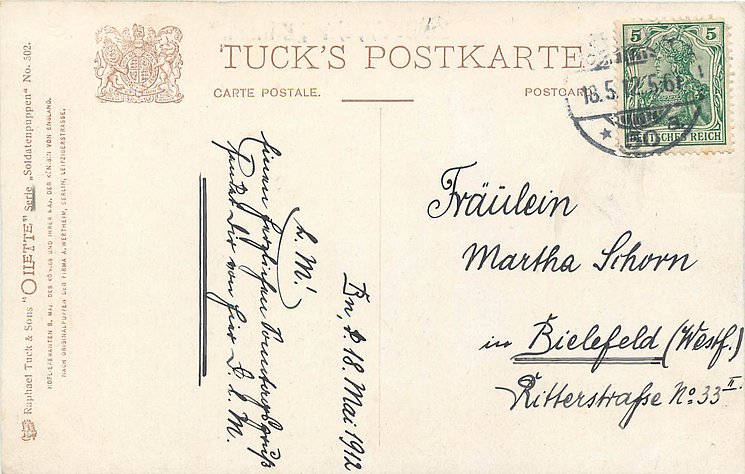 TUCK'S POSTKARTE
CARTE POSTALE.
POSTCARD
Raphael Tuck & Sons' "OILETTE" Serie „Soldatenpuppen“ No. 502.
HOFLIEFERANTEN S. MAJ. DES KÖNIGS UND IHRER MAJ. DER KÖNIGIN VON ENGLAND.
NACH ORIGINALPUPPEN DER FIRMA A. WERTHEIM, BERLIN, LEIPZIGERSTRASSE.
5 5
DEUTSCHES REICH
18.5.12.5-6
Bn, d. 18. Mai 1912
L. M!
Einen herzlichen Sonntagsgruß
sendet Dir von hier D. l. M.
Fräulein
Martha Schorn
in Bielefeld (Westf.)
Ritterstraße No: 33 II.